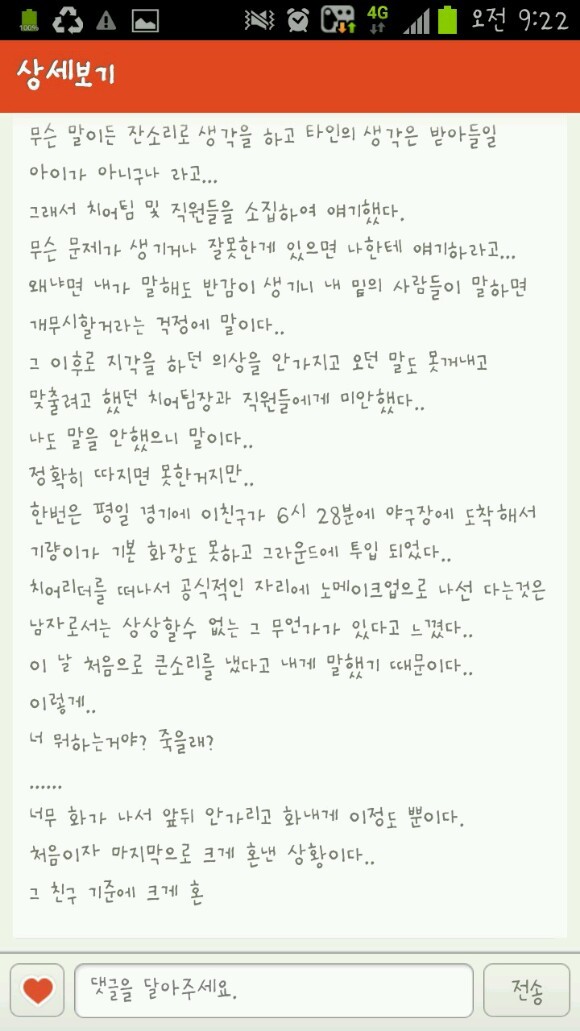 100%
4G
오전 9:22
상세보기
무슨 말이든 잔소리로 생각을 하고 타인의 생각은 받아들일
아이가 아니구나 라고...
그래서 치어팀 및 직원들을 소집하여 얘기했다.
무슨 문제가 생기거나 잘못한게 있으면 나한테 얘기하라고...
왜냐면 내가 말해도 반감이 생기니 내 밑의 사람들이 말하면
개무시할거라는 걱정에 말이다..
그 이후로 지각을 하던 의상을 안가지고 오던 말도 못꺼내고
맞출려고 했던 치어팀장과 직원들에게 미안했다..
나도 말을 안했으니 말이다..
정확히 따지면 못한거지만..
한번은 평일 경기에 이친구가 6시 28분에 야구장에 도착해서
기량이가 기본 화장도 못하고 그라운드에 투입 되었다..
치어리더를 떠나서 공식적인 자리에 노메이크업으로 나선 다는것은
남자로서는 상상할수 없는 그 무언가가 있다고 느꼈다..
이 날 처음으로 큰소리를 냈다고 내게 말했기 때문이다..
이렇게..
너 뭐하는거야? 죽을래?
......
너무 화가 나서 앞뒤 안가리고 화내게 이정도 뿐이다.
처음이자 마지막으로 크게 혼낸 상황이다..
그 친구 기준에 크게 혼
댓글을 달아주세요.
전송